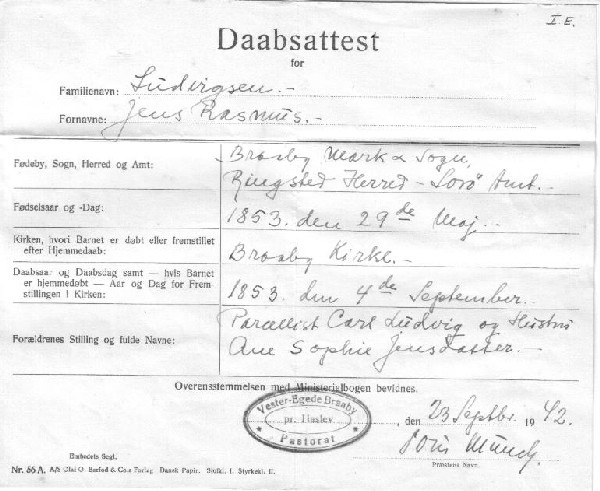 I.E.
Daabsattest
for
Familienavn: Ludvigsen.-
Fornavne: Jens Rasmus.-
Fødeby, Sogn, Herred og Amt: Braaby Mark & Sogn,
Ringsted Herred - Sorø Amt.-
Fødselsaar og -Dag: 1853. den 29de Maj.-
Kirken, hvori Barnet er døbt eller fremstillet
efter Hjemmedaab: Braaby Kirke.-
Daabsaar og Daabsdag samt — hvis Barnet
er hjemmedøbt — Aar og Dag for Frem-
stillingen i Kirken: 1853. den 4de September.-
Parcellist Carl Ludvig og Hustru
Forældrenes Stilling og fulde Navne: Ane Sophie Jensdatter.-
Overensstemmelsen med Ministerialbogen bevidnes.
Vester-Egede Braaby
pr. Haslev
Pastorat
, den 23 Septbr. 1942.
Munch
Embedets Segl.
Præstens Navn.
Nr. 56 A. A/S Chr. O. Bærlod & Co.s Forlag Dansk Papir. Stofkl. I. Styrkekl. II.